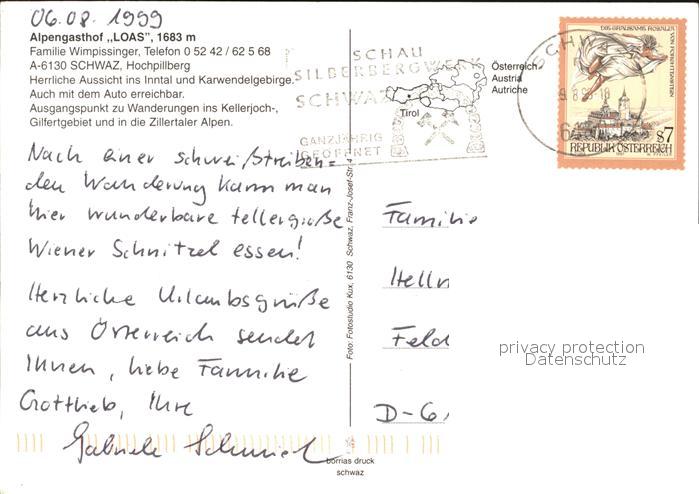 06.08.1999
Alpengasthof „LOAS", 1683 m
Familie Wimpissinger, Telefon 0 52 42 / 62 5 68
A-6130 SCHWAZ, Hochpillberg
Herrliche Aussicht ins Inntal und Karwendelgebirge.
Auch mit dem Auto erreichbar.
Ausgangspunkt zu Wanderungen ins Kellerjoch-,
Gilfertgebiet und in die Zillertaler Alpen.
SCHAU
SILBERBERGWERK
SCHWAZ
GANZJÄHRIG
GEÖFFNET
Tirol
Österreich
Austria
Autriche
DIE GRAUSAME ROSALIA
VON FORCHTENSTEIN
S7
REPUBLIK ÖSTERREICH
1997
Nach einer schweißtreiben-
den Wanderung kann man
hier wunderbare tellergroße
Wiener Schnitzel essen!
Herzliche Urlaubsgrüße
aus Österreich sendet
Ihnen, liebe Familie
Gottlieb, Ihre
Gabriele Schmid
Foto: Fotostudio Kux, 6130 Schwaz, Franz-Josef-Str. 4
Familie
Helln
Feld
D-6
privacy protection
Datenschutz
borrias druck
schwaz